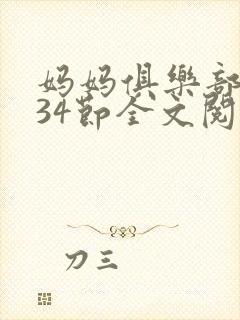 妈妈俱樂部
34節全文閱
刀三